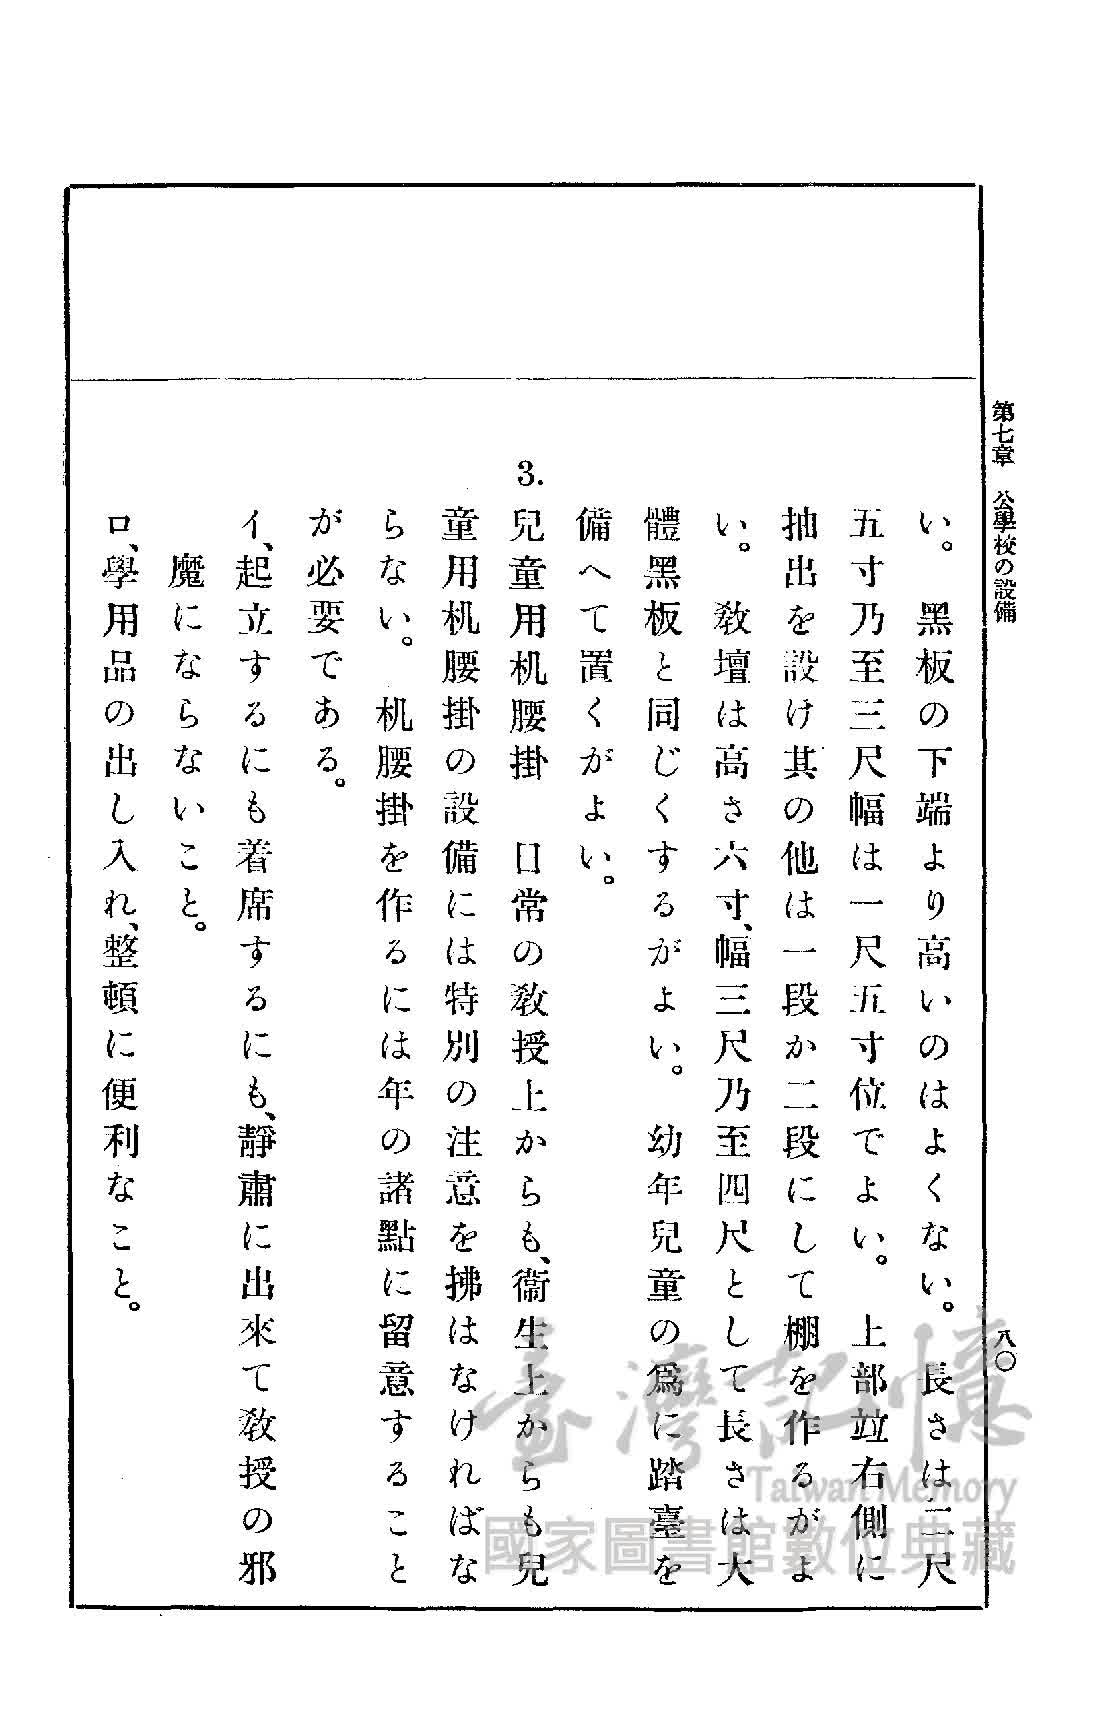 第七章　公學校の設備
八〇
い。　黑板の下端より高いのはよくない。　長さは二尺
五寸乃至三尺幅は一尺五寸位でよい。　上部竝右側に
抽出を設け其の他は一段か二段にして棚を作るがよ
い。　敎壇は高さ六寸、幅三尺乃至四尺として長さは大
體黑板と同じくするがよい。　幼年兒童の爲に踏臺を
備へて置くがよい。
3.
兒童用机腰掛　日常の敎授上からも、衞生上からも兒
童用机腰掛の設備には特別の注意を拂はなければな
らない。　机腰掛を作るには年の諸點に留意すること
が必要である。
イ、起立するにも着席するにも、靜肅に出來て敎授の邪
魔にならないこと。
ロ、學用品の出し入れ、整頓に便利なこと。
臺灣記憶
Taiwan Memory
國家圖書館數位典藏